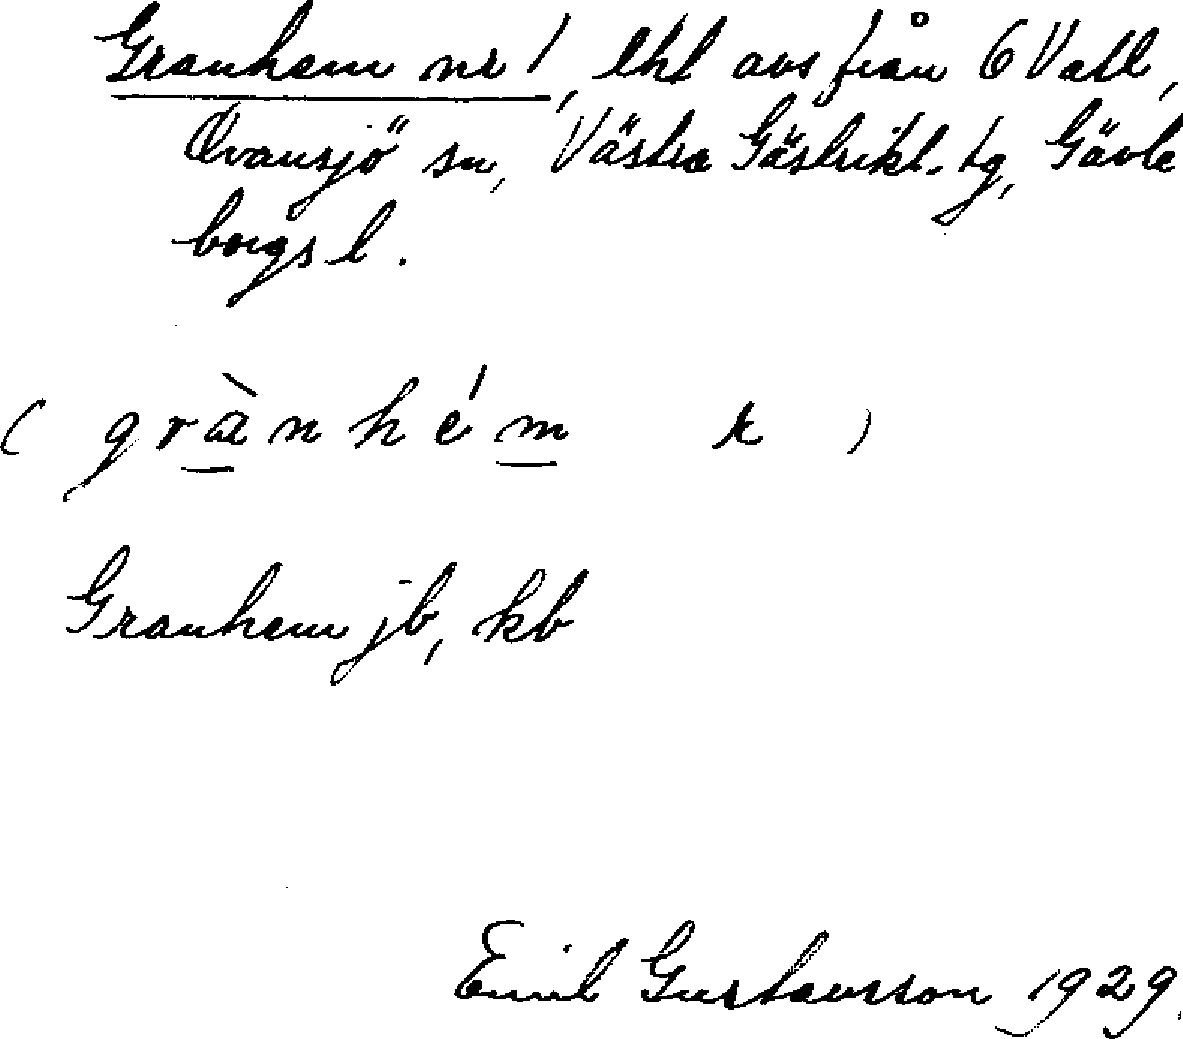 Granhem nr 1, lht avs från 6 Vall,
Ovansjö sn, Västra Gästrikl. tg, Gävle
borgs l.
( grànhém k )
Granhem jb, kb
Emil Gustavsson 1929.